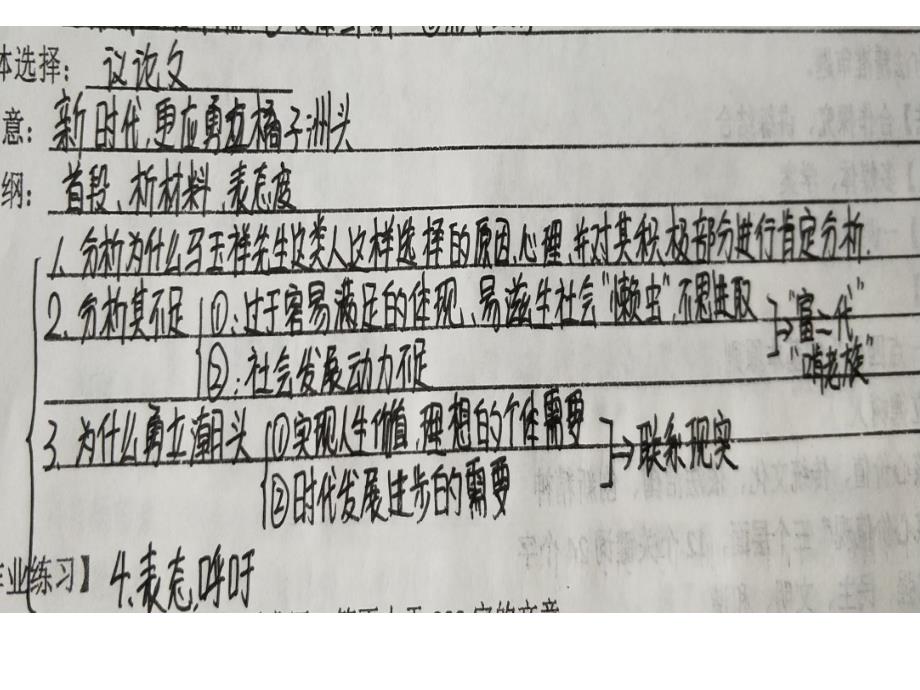 体选择：议论文
意：新时代，更应勇立橘子洲头
纲：首段、析材料、表态度
1. 分析为什么马玉祥先生这类人这样选择的原因、心理，并对其积极部分进行肯定分析.
2. 分析其不足 ①：过于容易满足的体现、易滋生社会“懒虫”,不思进取 → “富二代”
②：社会发展动力不足 “啃老族”
3. 为什么勇立潮头 ①实现人生价值，理想的个体需要 → 联系现实
②时代发展进步的需要
业练习】 4、表态，呼吁